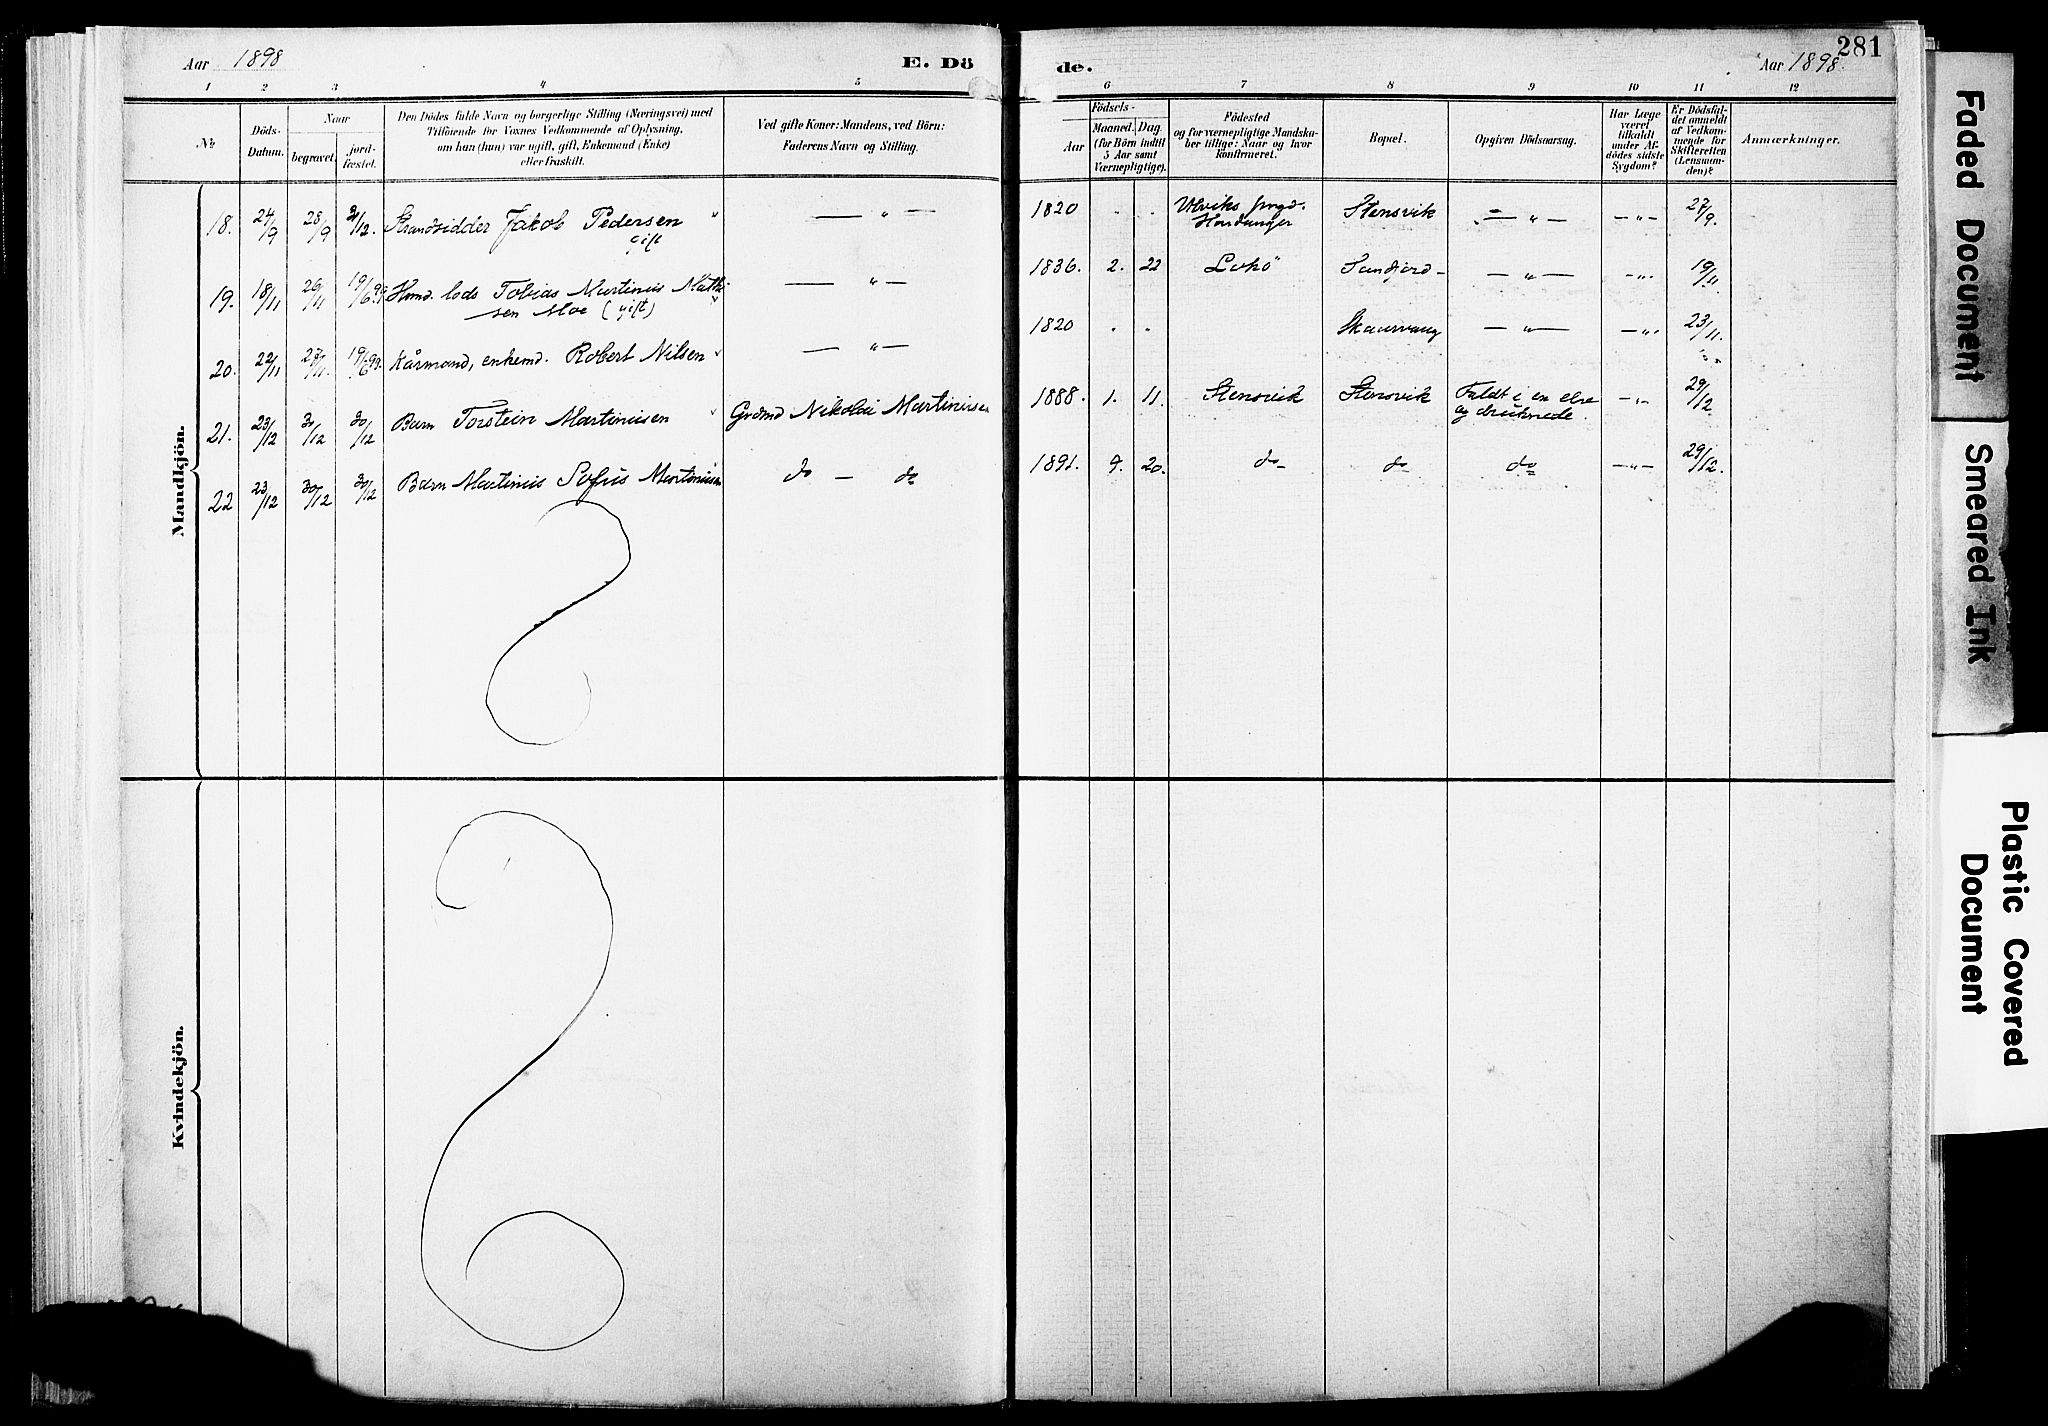 Aar 1898 E. Dö
de. Aar 1898. 281
1 2 3 4 5 6 7 8 9 10 11 12
No
Döds-
Datum.
Naar
begravet.
jord-
fæstet.
Den Dödes fulde Navn og borgerlige Stilling (Næringsvei) med
Tilföiende for Voxnes Vedkommende af Oplysning,
om han (hun) var ugift, gift, Enkemand (Enke)
eller fraskilt.
Ved gifte Koner: Mandens, ved Börn:
Faderens Navn og Stilling.
Födsels-
Aar
Maaned. Dag
(for Börn indtil
5 Aar samt
Værnepligtige).
Födested
og for værnepligtige Mandska-
ber tillige: Naar og hvor
konfirmeret.
Bopæl.
Opgiven Dödsaarsag.
Har Læge
været
tilkaldt
under Af-
dödes sidste
Sygdom?
Er Dödsfal-
det anmeldt
af Vedkom-
mende for
Skifteretten
(Lensman-
den)?
Anmærkninger.
Mandkjön.
18. 24/9 28/9 31/12. Strandsidder Jakob Pedersen " — " — 1820 . . Ulviks prgd. Stensvik — " — — " — 27/9.
gift Hardanger
19. 18/11 26/11 19/6 99 Hmd. lods Tobias Martinus Math- — " — 1836. 2. 22 Lekö Sandjord — " — — " — 19/11.
sen Moe (gift)
20. 22/11 27/11. 19/6 99. Kårmand, enkemd. Robert Nilsen — " — 1820 . . Skaarvang — " — — " — 23/11.
21. 23/12 30/12 30/12 Barn Torstein Martinusen Grdmd Nikolai Martinusen 1888. 1. 11. Stensvik Stensvik Faldt i en elv — " — 29/12.
og druknede.
22 23/12 30/12 30/12 Barn Martinus Sofus Martinusen do — do 1891. 9. 20. do do do — " — 29/12.
Kvindekjön.
Faded Document
Smeared Ink
Plastic Covered
Document